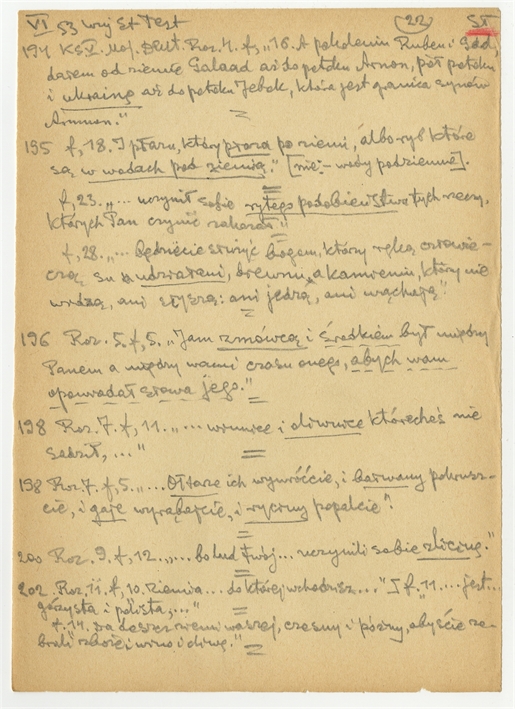 VI 53 wyj St Test (22) ST
194 Ks V. Moj. Deut. Roz. 4. f, „16. A pokoleniu Ruben i Gad,
dałem od ziemię Galaad aż do potoku Arnon, pół potoku
i ukrainę aż do potoku Jebok, która jest granica synów
Ammon."
195 f, 18. I płazu, który płoza po ziemi, albo ryb które
są w wodach pod ziemią." [nie - wody podziemne].
f, 23. „... uczynił sobie rytego podobieństwa tych rzeczy,
których Pan czynić zakazał."
f, 28. „... Będziecie służyć bogom, który ręką człowie-
czą są udziałani, drewnu, a kamieniu, który nie
widzą, ani słyszą: ani jedzą, ani wąchają."
196 Roz. 5. f, 5. „Jam zmówcą i średkiem był między
Panem a między wami czasu onego, abych wam
opowiadał słowa jego."
198 Roz. 7. f, 11. „... winnice i oliwnice którecheś nie
sadził, ..."
198 Roz. 7. f, 5. „... Ołtarze ich wywróćcie, i bałwany pokrusz-
cie, i gaje wyrąbajcie, i ryciny popalcie".
200 Roz. 9. f, 12. „... bo lud Twój... uczynili sobie zlicinę."
202. Roz. 11. f, 10. Ziemia... do której wchodzisz..." I f, "11.... jest...
górzysta i polista,..."
f. 14. za deszcz ziemi waszej, czesny i późny, abyście ze-
brali zboże i wino i oliwę."